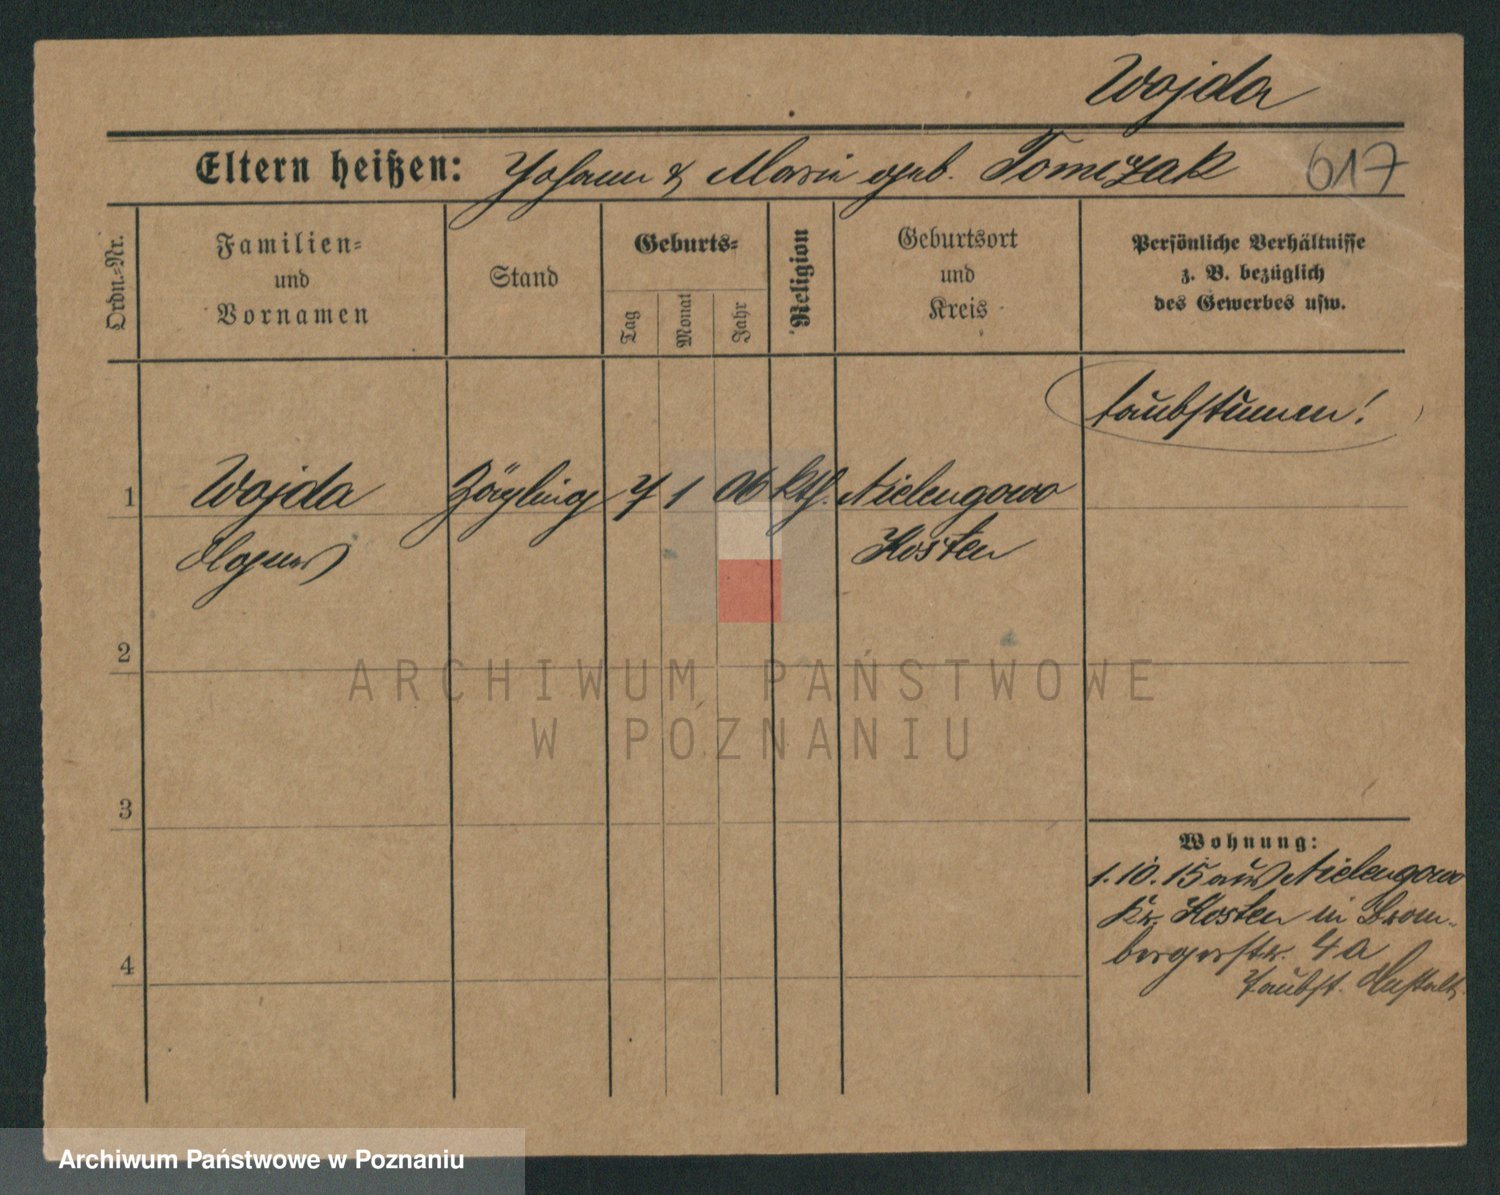 Wojda
Eltern heißen: Johann & Marie geb. Tomczak 617
Ordn.-Nr.
Familien-
und
Vornamen
Stand
Geburts-
Tag
Monat
Jahr
Religion
Geburtsort
und
Kreis
Persönliche Verhältnisse
z. B. bezüglich
des Gewerbes usw.
taubstummen!
1 Wojda Zögling 7 1 06 kth. Nielengowo
Kosten
2
3
4
Wohnung:
1.10.15 aus Nielengowo
Kr. Kosten in Brom-
bergerstr. 4a
Taubst. Anstalt
ARCHIWUM PAŃSTWOWE
W POZNANIU
Archiwum Państwowe w Poznaniu